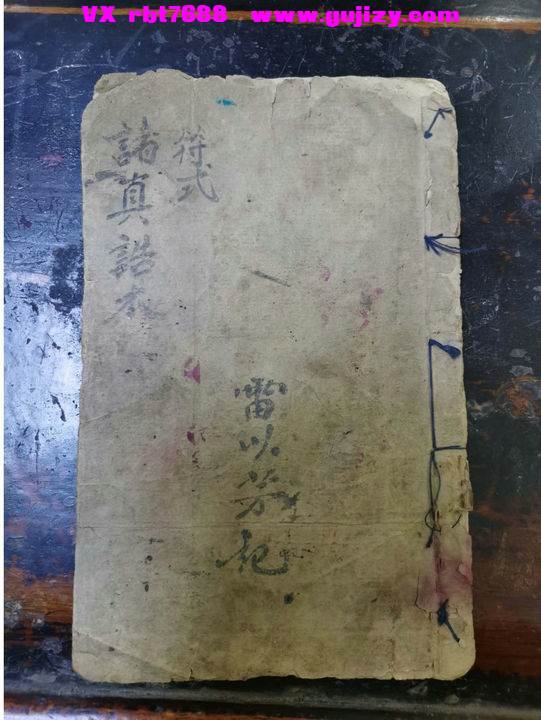 VX rbt7688 www.gujizy.com
符式
諸真誥本
雷以芳記